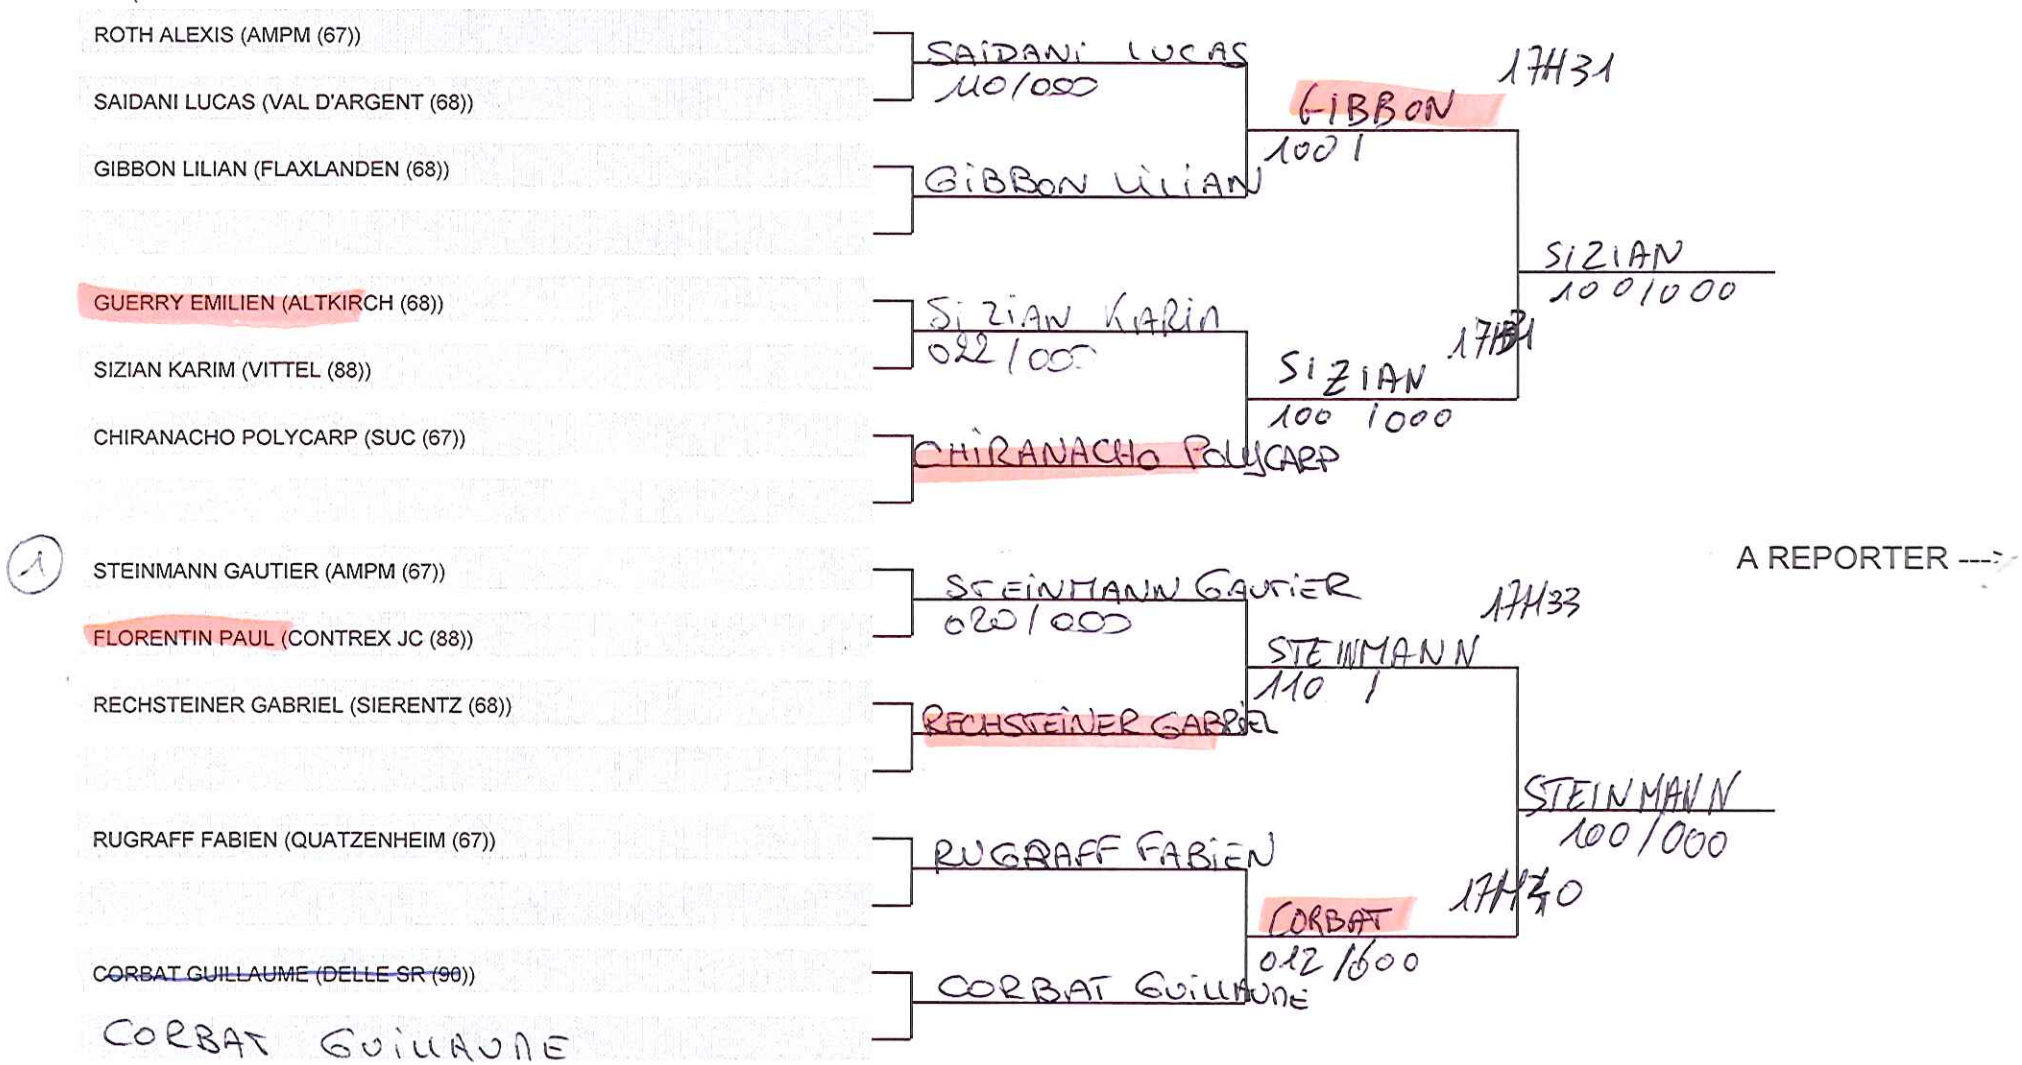 ROTH ALEXIS (AMPM (67))
SAIDANI LUCAS (VAL D'ARGENT (68))
GIBBON LILIAN (FLAXLANDEN (68))
GUERRY EMILIEN (ALTKIRCH (68))
SIZIAN KARIM (VITTEL (88))
CHIRANACHO POLYCARP (SUC (67))
1
STEINMANN GAUTIER (AMPM (67))
FLORENTIN PAUL (CONTREX JC (88))
RECHSTEINER GABRIEL (SIERENTZ (68))
RUGRAFF FABIEN (QUATZENHEIM (67))
CORBAT GUILLAUME (DELLE SR (90))
CORBAT GUILLAUME
SAIDANI LUCAS
110/000
GIBBON LILIAN
SIZIAN KARIM
022/000
CHIRANACHO POLYCARP
STEINMANN GAUTIER
020/000
RECHSTEINER GABRIEL
RUGRAFF FABIEN
CORBAT GUILLAUME
17H31
GIBBON
100 /
17H31
SIZIAN
100 /000
17H33
STEINMANN
110 /
17H40
CORBAT
012/000
SIZIAN
100/000
A REPORTER --->
STEINMANN
100/000